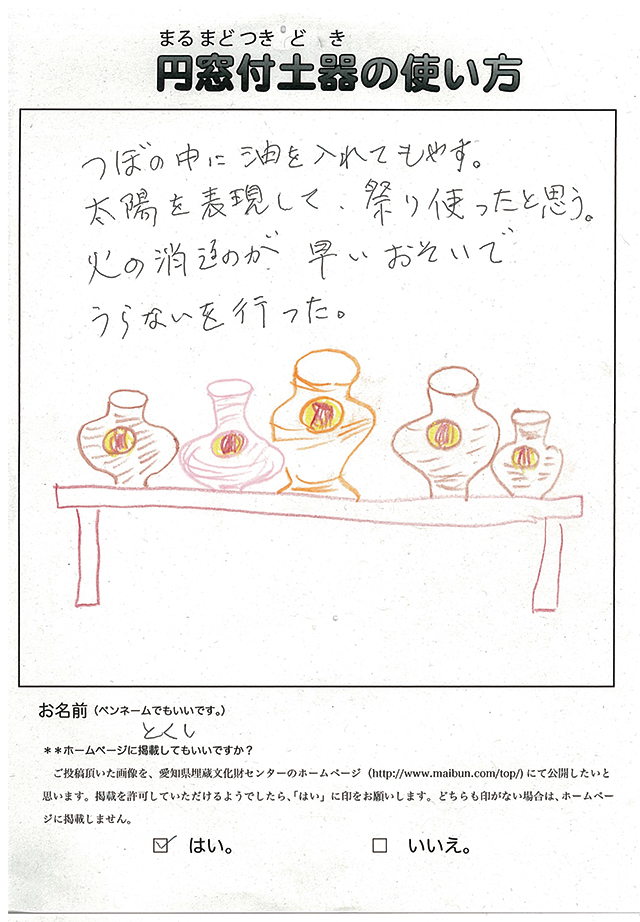 まるまどつきどき
円窓付土器の使い方
つぼの中に油を入れてもやす。
太陽を表現して、祭り使ったと思う。
火の消えるのが 早い おそいで
うらないを行った。
お名前（ペンネームでもいいです。）
とくし
＊＊ホームページに掲載してもいいですか？
ご投稿頂いた画像を、愛知県埋蔵文化財センターのホームページ（http://www.maibun.com/top/）にて公開したいと
思います。掲載を許可していただけるようでしたら、「はい」に印をお願いします。どちらも印がない場合は、ホームペー
ジに掲載しません。
☑ はい。 □ いいえ。